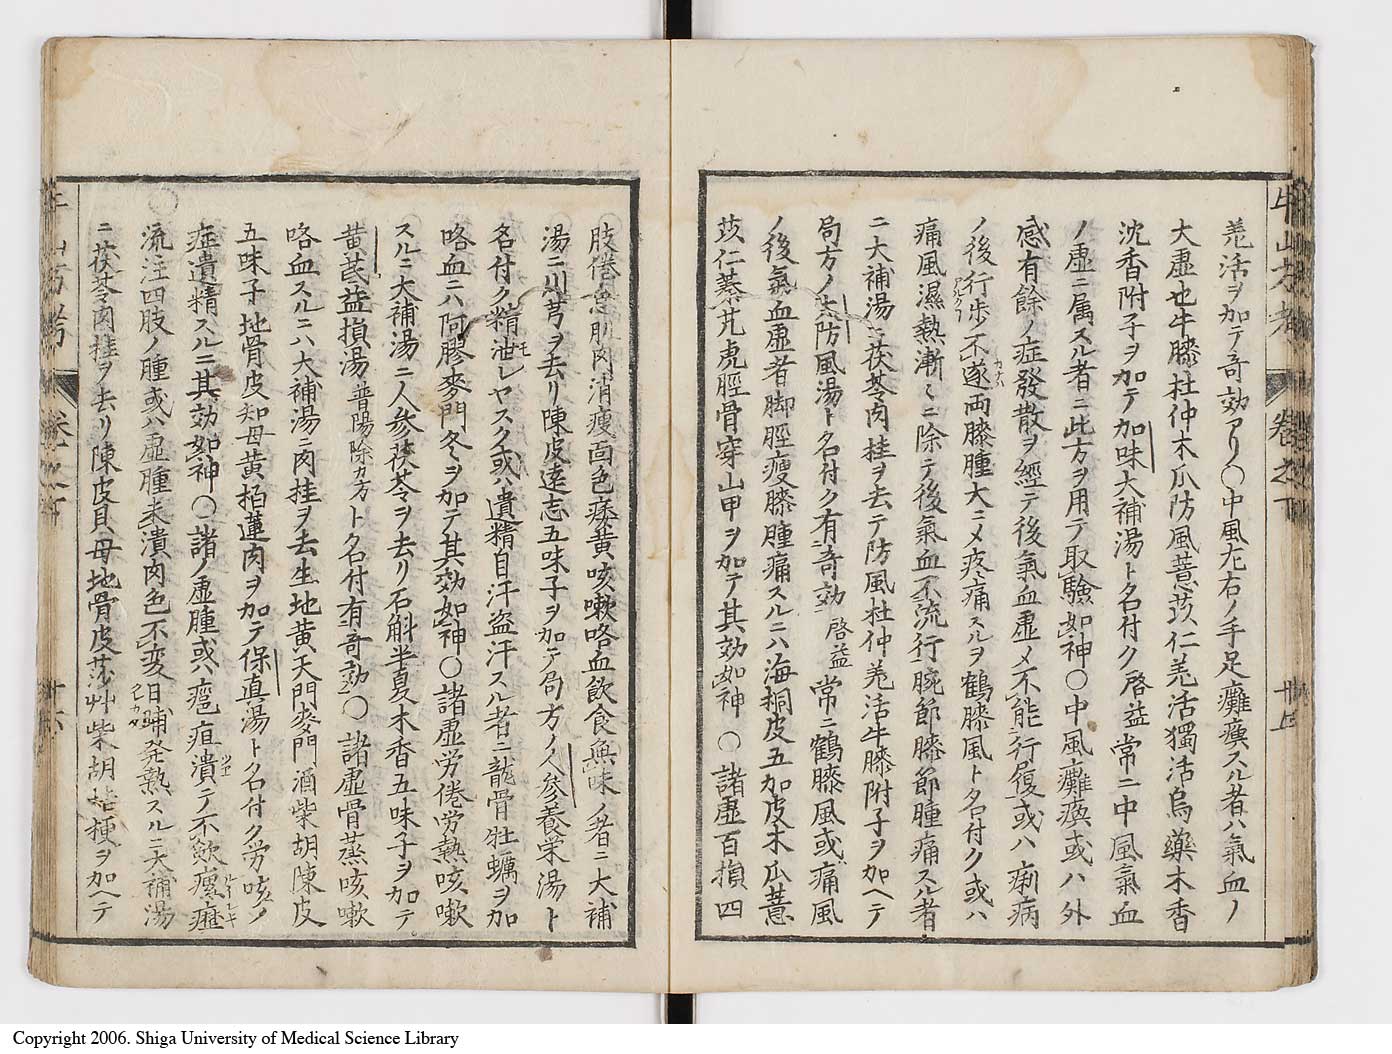 羗活ヲ加テ奇効アリ〇中風左右ノ手足癱瘓スル者ハ氣血ノ
大虚也牛膝杜仲木瓜防風薏苡仁羗活獨活烏藥木香
沈香附子ヲ加テ加味大補湯ト名付ク啓益常ニ中風氣血
ノ虚ニ属スル者ニ此方ヲ用テ取驗如神〇中風癱瘓或ハ外
感有餘ノ症發散ヲ經テ後氣血虚メ不能行履或ハ痢病
ノ後行歩不遂両膝腫大ニメ疼痛スルヲ鶴膝風ト名付ク或ハ
痛風濕熱漸〻ニ除テ後氣血不流行腕節膝節腫痛スル者
ニ大補湯ニ茯苓肉桂ヲ去テ防風杜仲羗活牛膝附子ヲ加ヘテ
局方ノ大防風湯ト名付ク有奇効 啓益常ニ鶴膝風或痛風
ノ後氣血虚者脚脛瘦膝腫痛スルニハ海桐皮五加皮木瓜薏
苡仁蓁艽虎脛骨穿山甲ヲ加テ其効如神〇諸虚百損四
肢倦怠肌肉消瘦面色痿黄咳嗽咯血飲食無味ノ者ニ大補
湯ニ川芎ヲ去リ陳皮遠志五味子ヲ加テ局方ノ人参養栄湯ト
名付ク精泄レヤスク或ハ遺精自汗盗汗スル者ニ龍骨牡蠣ヲ加
咯血ニハ阿膠麥門冬ヲ加テ其効如神〇諸虚労倦労熱咳嗽
スルニ大補湯ニ人参茯苓ヲ去リ石斛半夏木香五味子ヲ加テ
黄芪益損湯普陽除カ方ト名付有奇効〇諸虚骨蒸咳嗽
咯血スルニハ大補湯ニ肉桂ヲ去生地黄天門麥門酒柴胡陳皮
五味子地骨皮知母黄栢蓮肉ヲ加テ保真湯ト名付ク労咳ノ
症遺精スルニ其効如神〇諸ノ虚腫或ハ瘡疽潰テ不歛瘰癧
流注四肢ノ腫或ハ虚腫未潰肉色不変日晡発熱スルニ大補湯
ニ茯苓肉桂ヲ去リ陳皮貝母地骨皮莎艸柴胡桔梗ヲ加ヘテ
牛山方考 巻之下
Copyright 2006. Shiga University of Medical Science Library